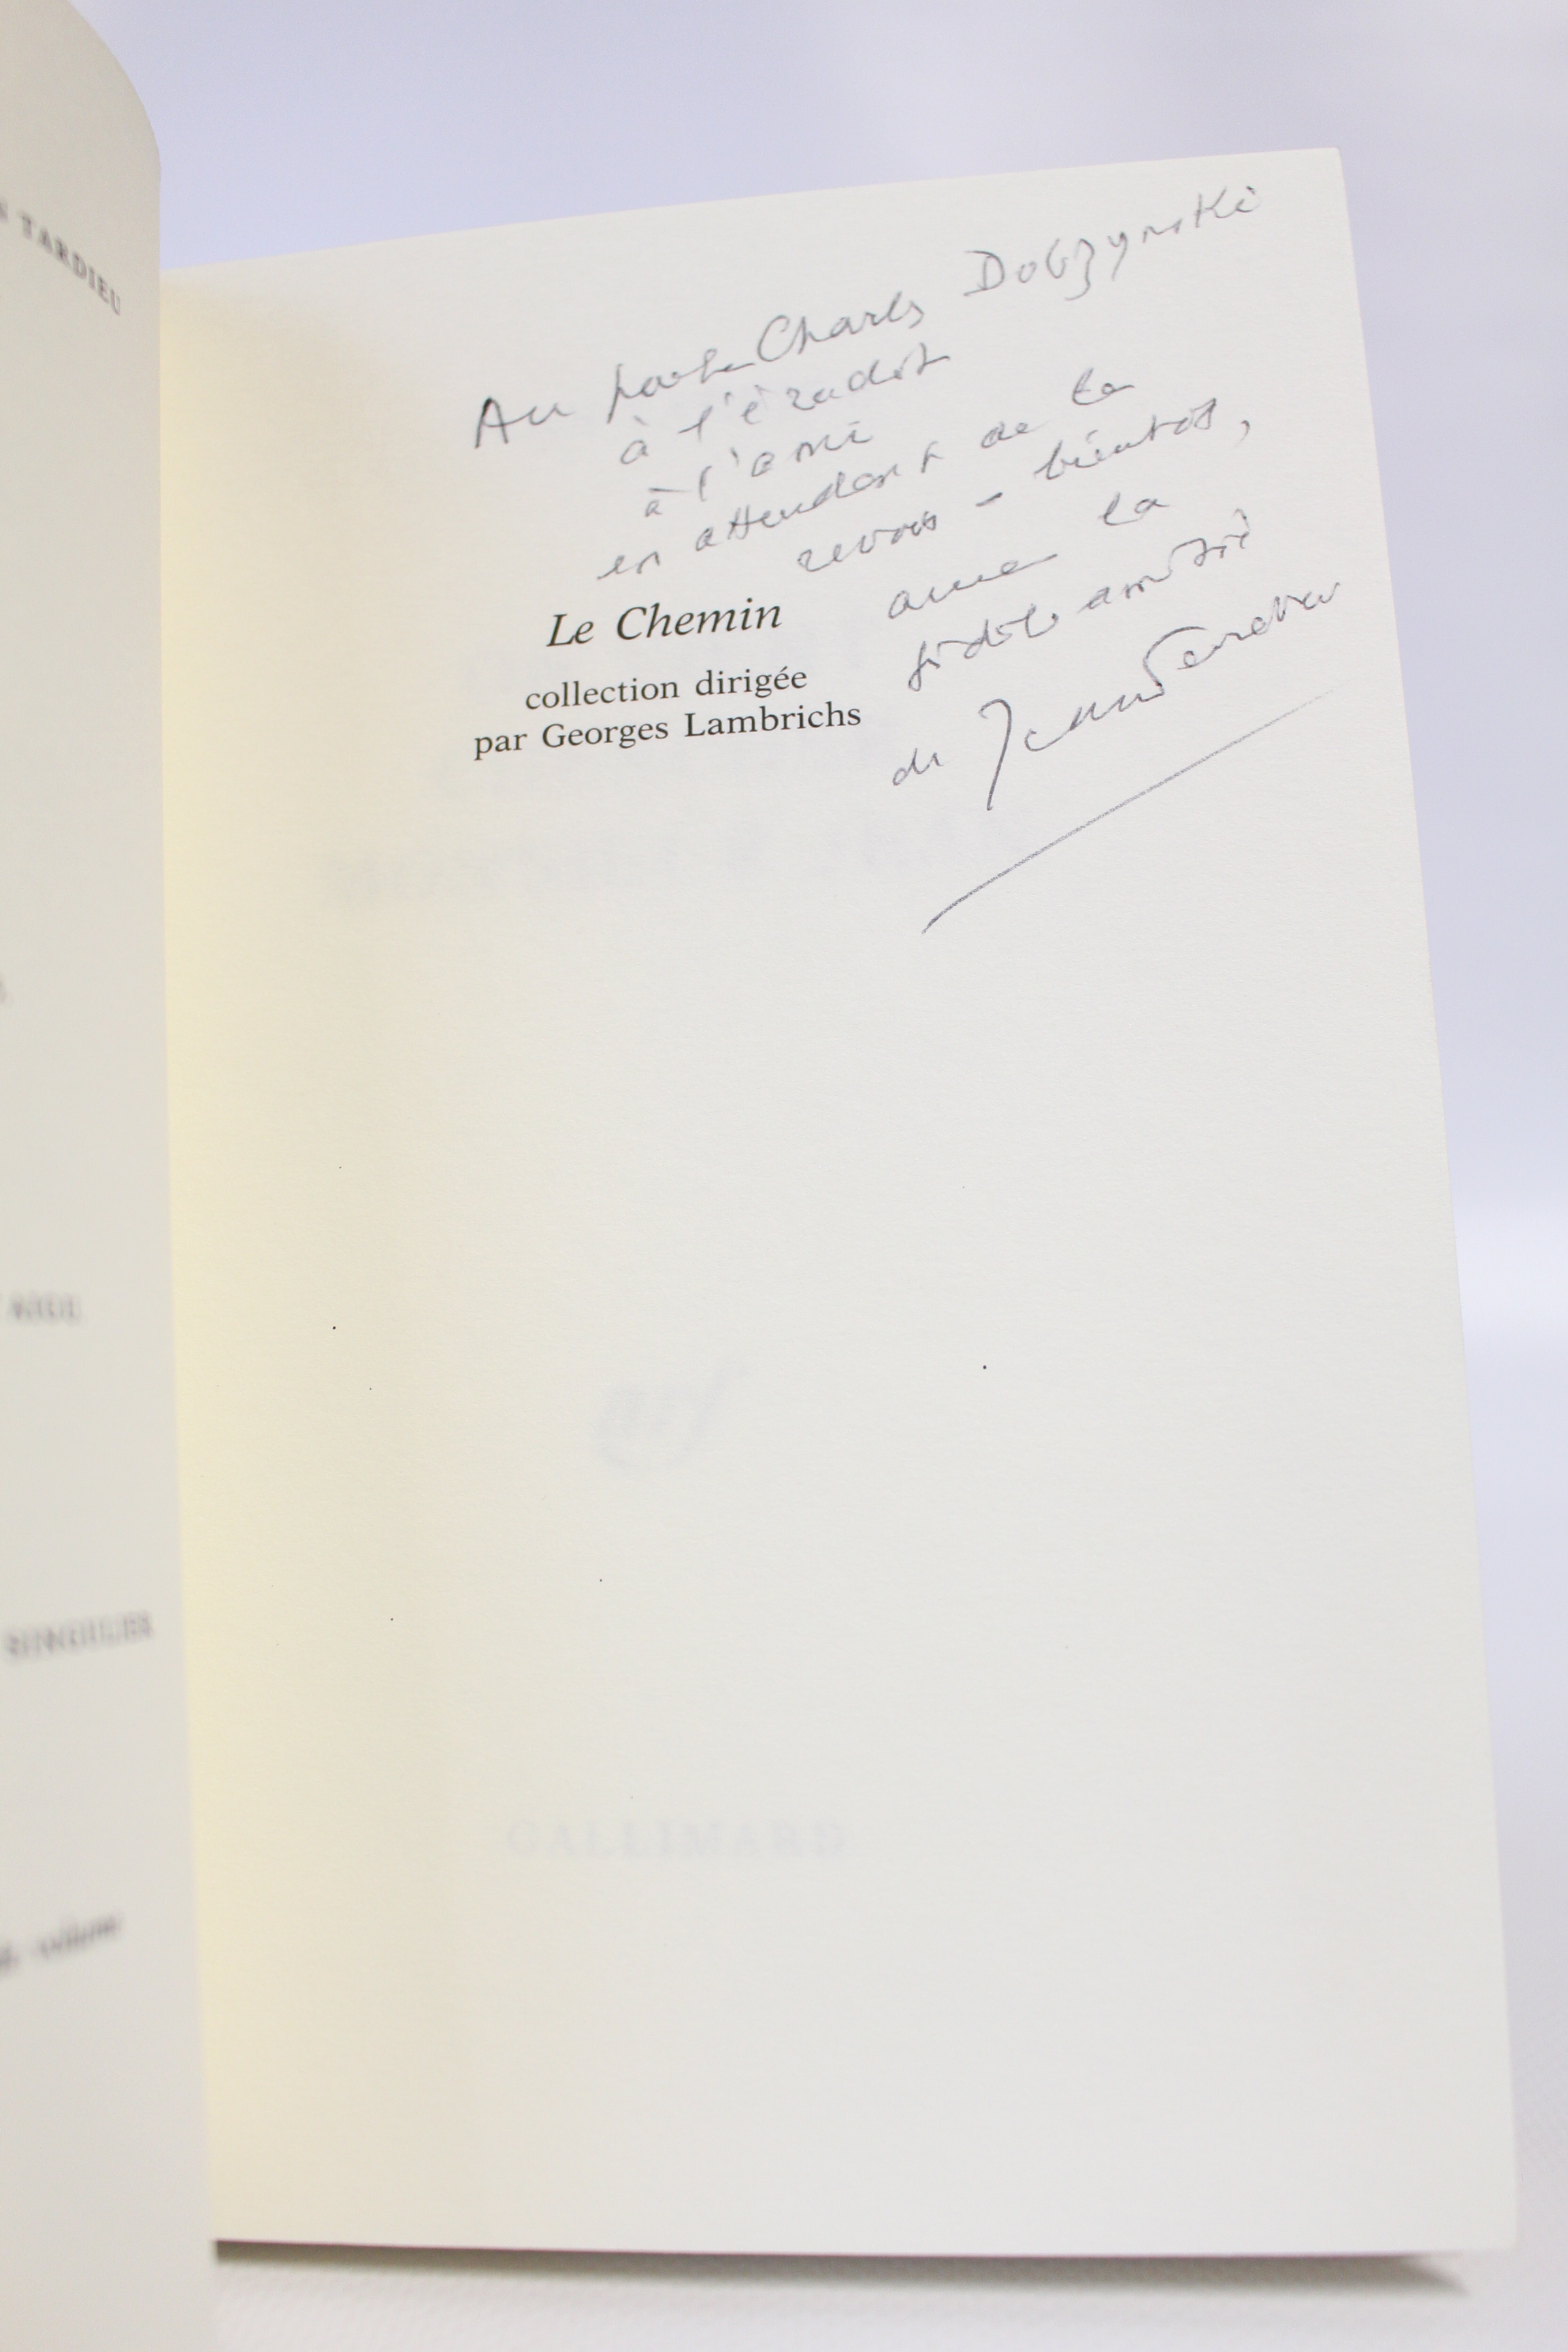 TARDIEU
SINGULIER
volume
Au poète Charles Dobzynski
à l'érudit
à l'ami
en attendant de le
revoir - bientôt,
avec la
fidèle amitié
de Jean Tardieu
Le Chemin
collection dirigée
par Georges Lambrichs
nrf
GALLIMARD